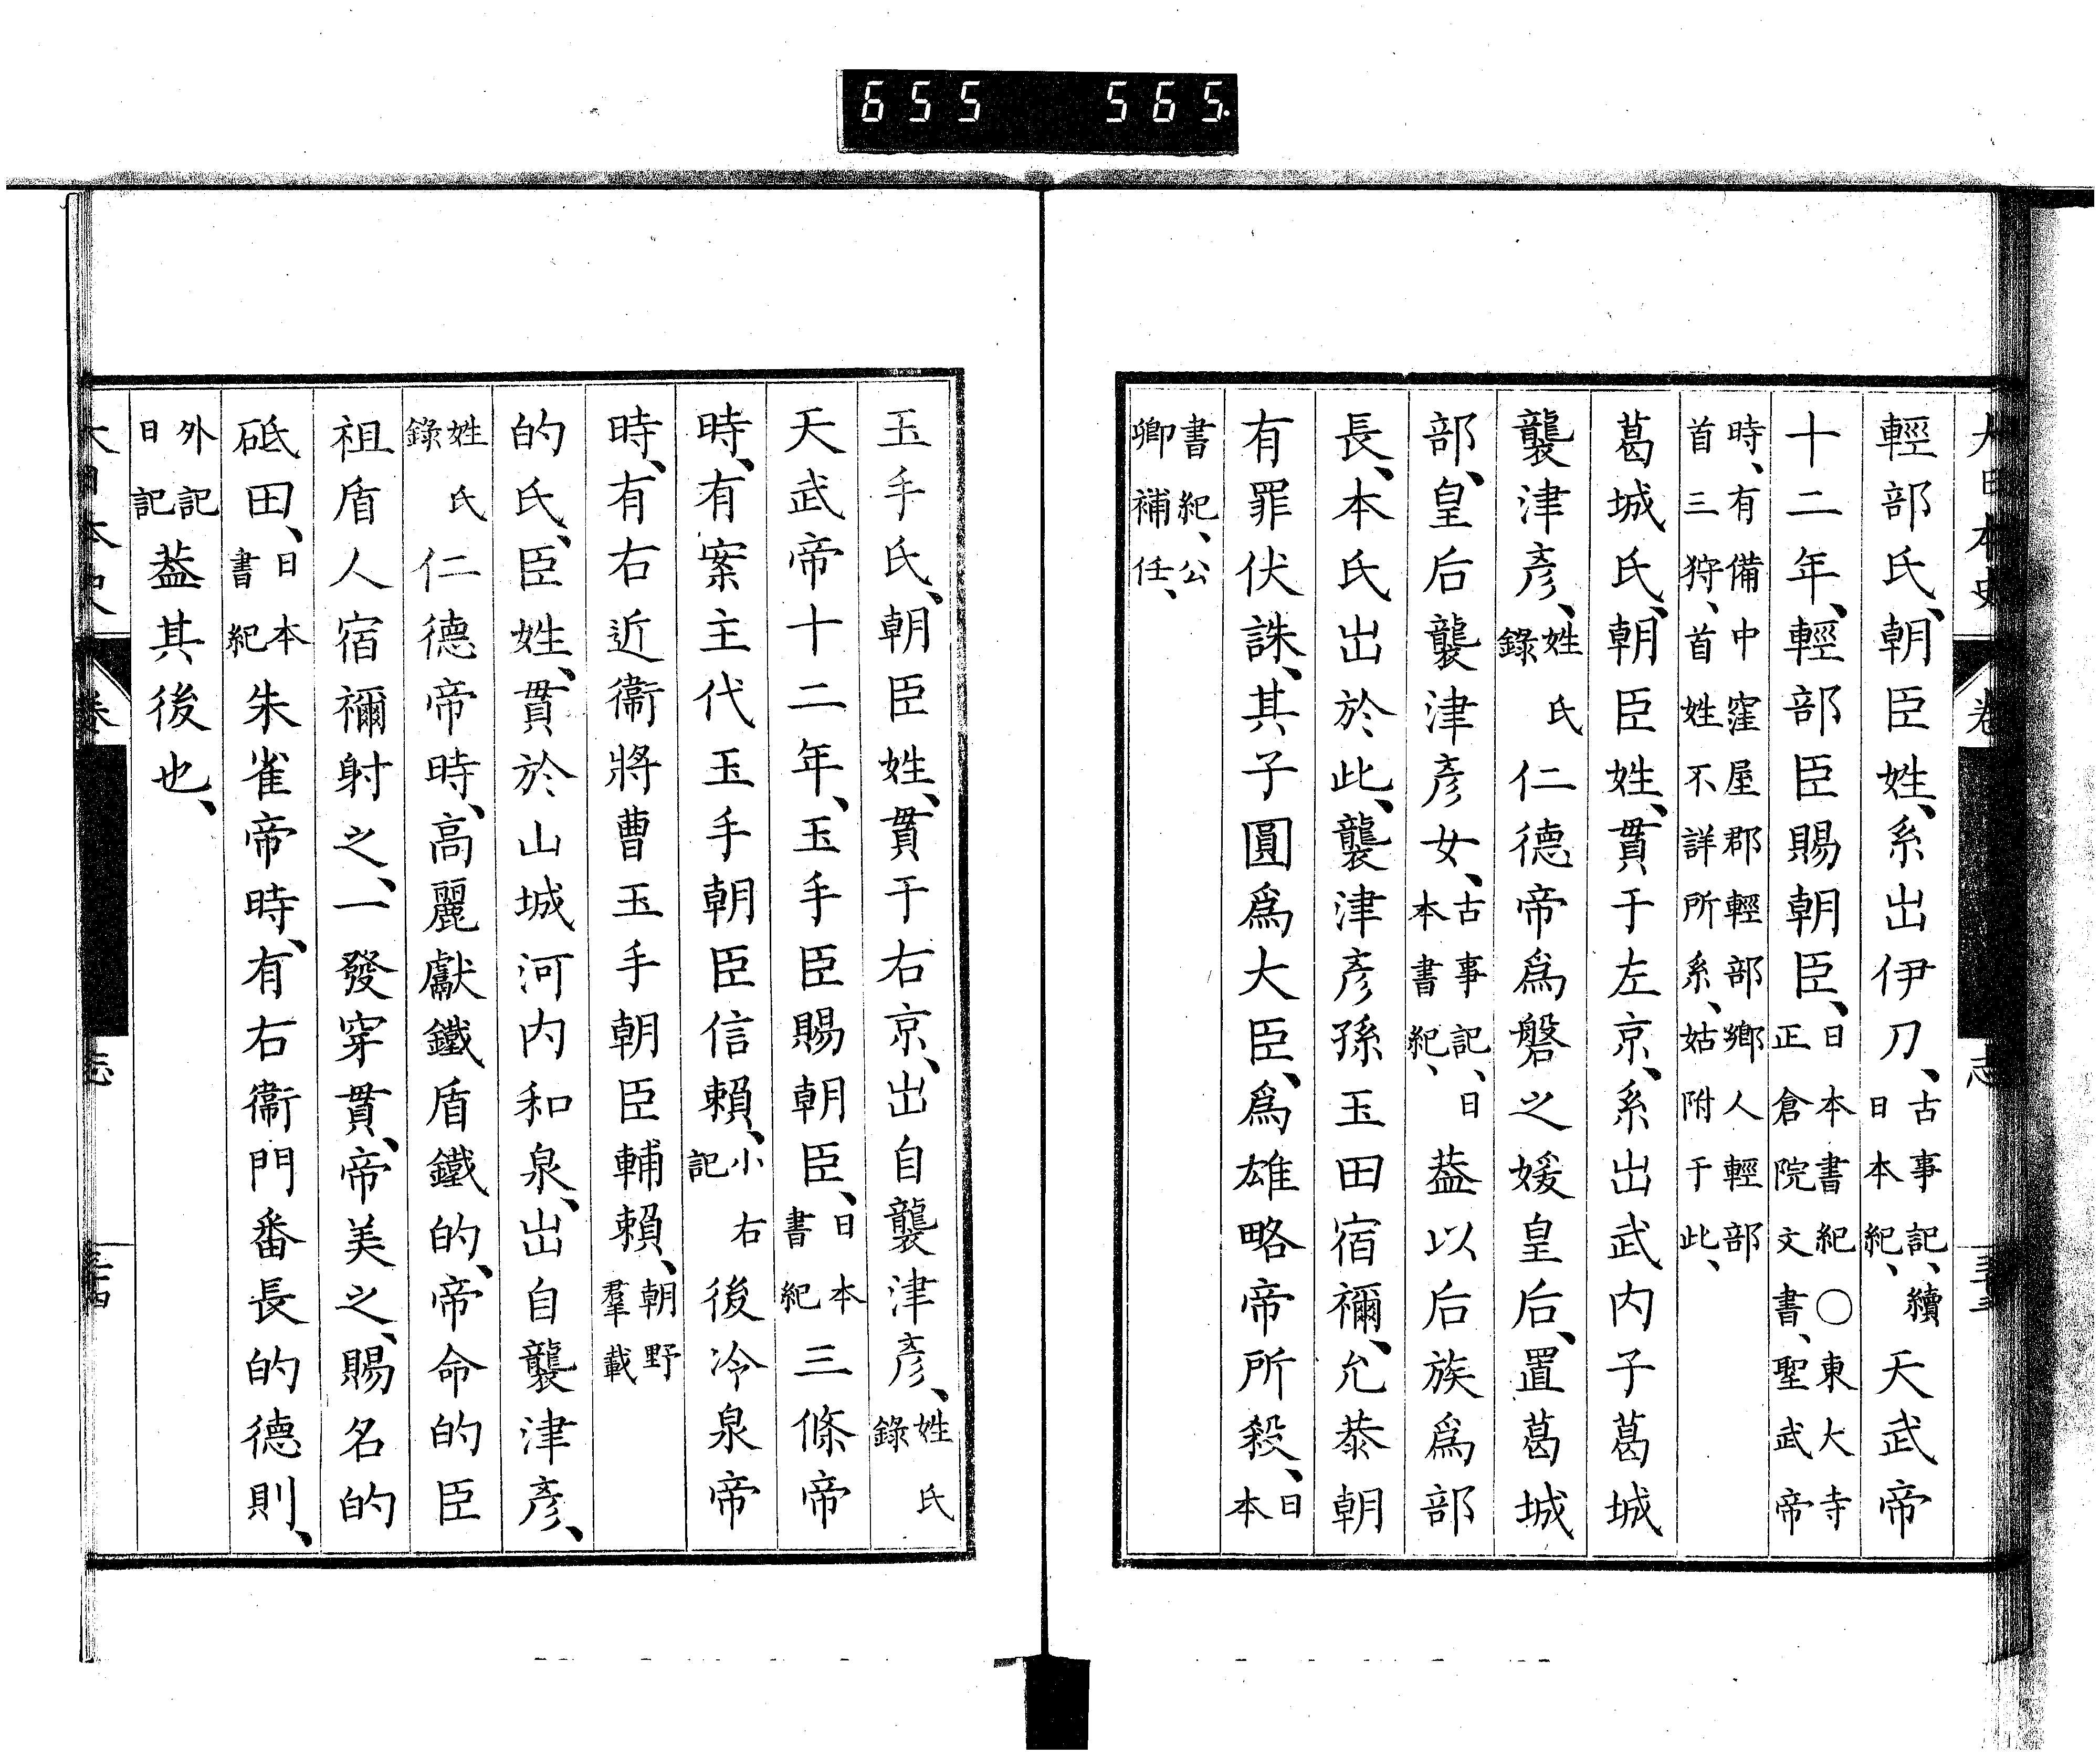 655 565.
大日本史 卷 志
輕部氏、朝臣姓、系出伊刀、古事記、續日本紀、天武帝
十二年、輕部臣賜朝臣、日本書紀○東大寺正倉院文書、聖武帝
時、有備中窪屋郡輕部鄉人輕部首三狩、首姓不詳所系、姑附于此、
葛城氏、朝臣姓、貫于左京、系出武内子葛城
襲津彥、姓氏錄仁德帝爲磐之媛皇后、置葛城
部、皇后襲津彥女、古事記、日本書紀、葢以后族爲部
長、本氏出於此、襲津彥孫玉田宿禰、允恭朝
有罪伏誅、其子圓爲大臣、爲雄略帝所殺、日本
書紀、公卿補任、
玉手氏、朝臣姓、貫于右京、出自襲津彥、姓氏錄
天武帝十二年、玉手臣賜朝臣、日本書紀三條帝
時、有案主代玉手朝臣信賴、小右記後冷泉帝
時、有右近衞將曹玉手朝臣輔賴、朝野羣載
的氏、臣姓、貫於山城河内和泉、出自襲津彥、
姓氏錄仁德帝時、高麗獻鐵盾鐵的、帝命的臣
祖盾人宿禰射之、一發穿貫、帝美之、賜名的
砥田、日本書紀朱雀帝時、有右衞門番長的德則、
外記日記葢其後也、
大日本史 卷 志